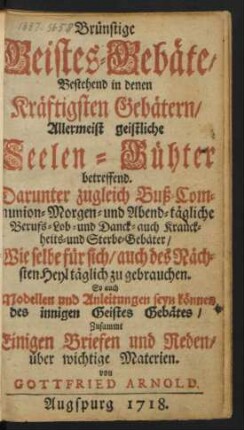 Brünstige
Geistes-Gebäte/
Bestehend in denen
Kräftigsten Gebätern/
Allermeist geistliche
Seelen-Gühter
betreffend.
Darunter zugleich Buß-Com-
munion-Morgen-und Abend-tägliche
Berufs-Lob-und Danck-auch Kranck-
heits-und Sterbe-Gebäter/
Wie selbe für sich/auch des Näch-
sten Heyl täglich zu gebrauchen.
So auch
Modellen und Anleitungen seyn können
des innigen Geistes Gebätes/
Zusamt
Einigen Briefen und Reden/
über wichtige Materien.
von
GOTTFRIED ARNOLD.
Augspurg 1718.